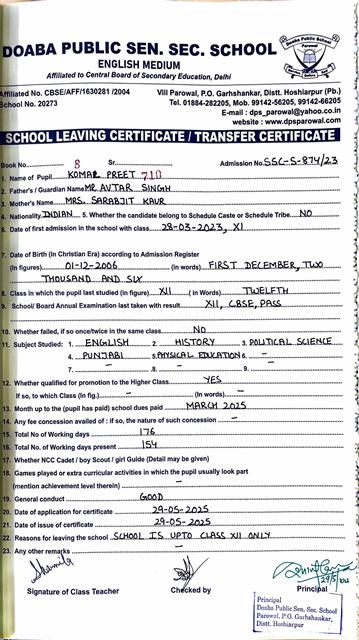 DOABA PUBLIC SEN. SEC. SCHOOL
ENGLISH MEDIUM
Affiliated to Central Board of Secondary Education, Delhi
Affiliated No. CBSE/AFF/1630281 /2004
School No. 20273
Vill Parowal, P.O. Garhshankar, Distt. Hoshiarpur (Pb.)
Tel. 01884-282205, Mob. 99142-56205, 99142-66205
E-mail : dps_parowal@yahoo.co.in
website : www.dpsparowal.com
SCHOOL LEAVING CERTIFICATE / TRANSFER CERTIFICATE
Book No. 8 Sr. Admission No. SSC-S-874/23
1. Name of Pupil KOMAL PREET 710
2. Father's / Guardian Name MR AVTAR SINGH
3. Mother's Name MRS. SARABJIT KAUR
4. Nationality INDIAN 5. Whether the candidate belong to Schedule Caste or Schedule Tribe NO
6. Date of first admission in the school with class 28-03-2023, XI
7. Date of Birth (In Christian Era) according to Admission Register
(In figures) 01-12-2006 (in words) FIRST DECEMBER, TWO
THOUSAND AND SIX
8. Class in which the pupil last studied (in figure) XII ( in Words) TWELFTH
9. School/ Board Annual Examination last taken with result XII, CBSE, PASS
10. Whether failed, if so once/twice in the same class NO
11. Subject Studied : 1. ENGLISH 2. HISTORY 3. POLITICAL SCIENCE
4. PUNJABI 5. PHYSICAL EDUCATION 6. –
7. – 8. – 9. –
12. Whether qualified for promotion to the Higher Class YES
If so, to which Class (In fig.) – (In Words) –
13. Month up to the (pupil has paid) school dues paid MARCH 2025
14. Any fee concession availed of : if so, the nature of such concession –
15. Total No of Working days 176
16. Total No. of Working days present 154
17. Whether NCC Cadet / boy Scout / girl Guide (Detail may be given)
18. Games played or extra curricular activities in which the pupil usually look part
(mention achievement level therein) –
19. General conduct GOOD
20. Date of application for certificate 29-05-2025
21. Date of issue of certificate 29-05-2025
22. Reasons for leaving the school SCHOOL IS UPTO CLASS XII ONLY
23. Any other remarks –
Signature of Class Teacher Checked by Principal
Principal
Doaba Public Sen. Sec. School
Parowal, P.O. Garhshankar,
Distt. Hoshiarpur